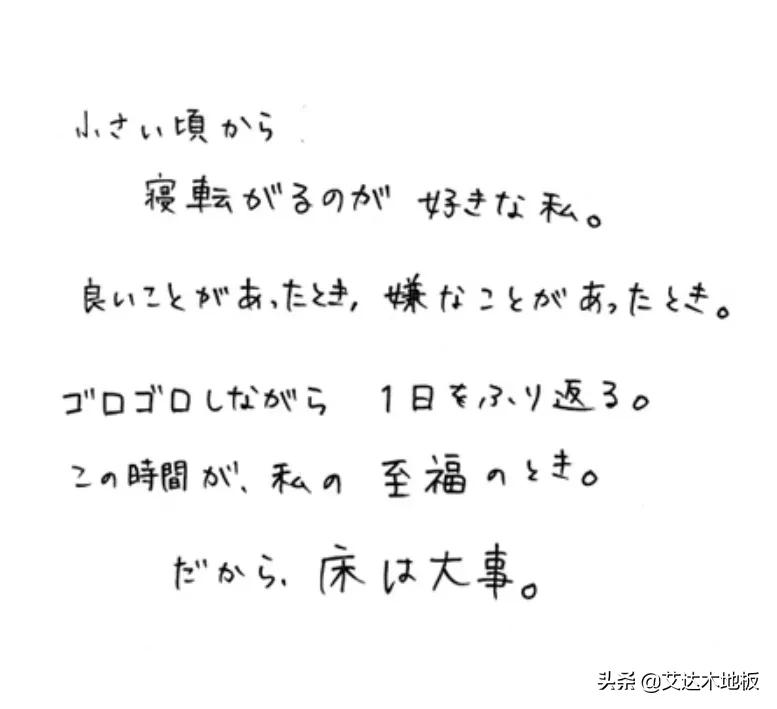 小さい頃から
寝転がるのが 好きな私。
良いことがあったとき、嫌なことがあったとき。
ゴロゴロしながら 1日をふり返る。
この時間が、私の 至福のとき。
だから、床は大事。
头条 @艾达木地板